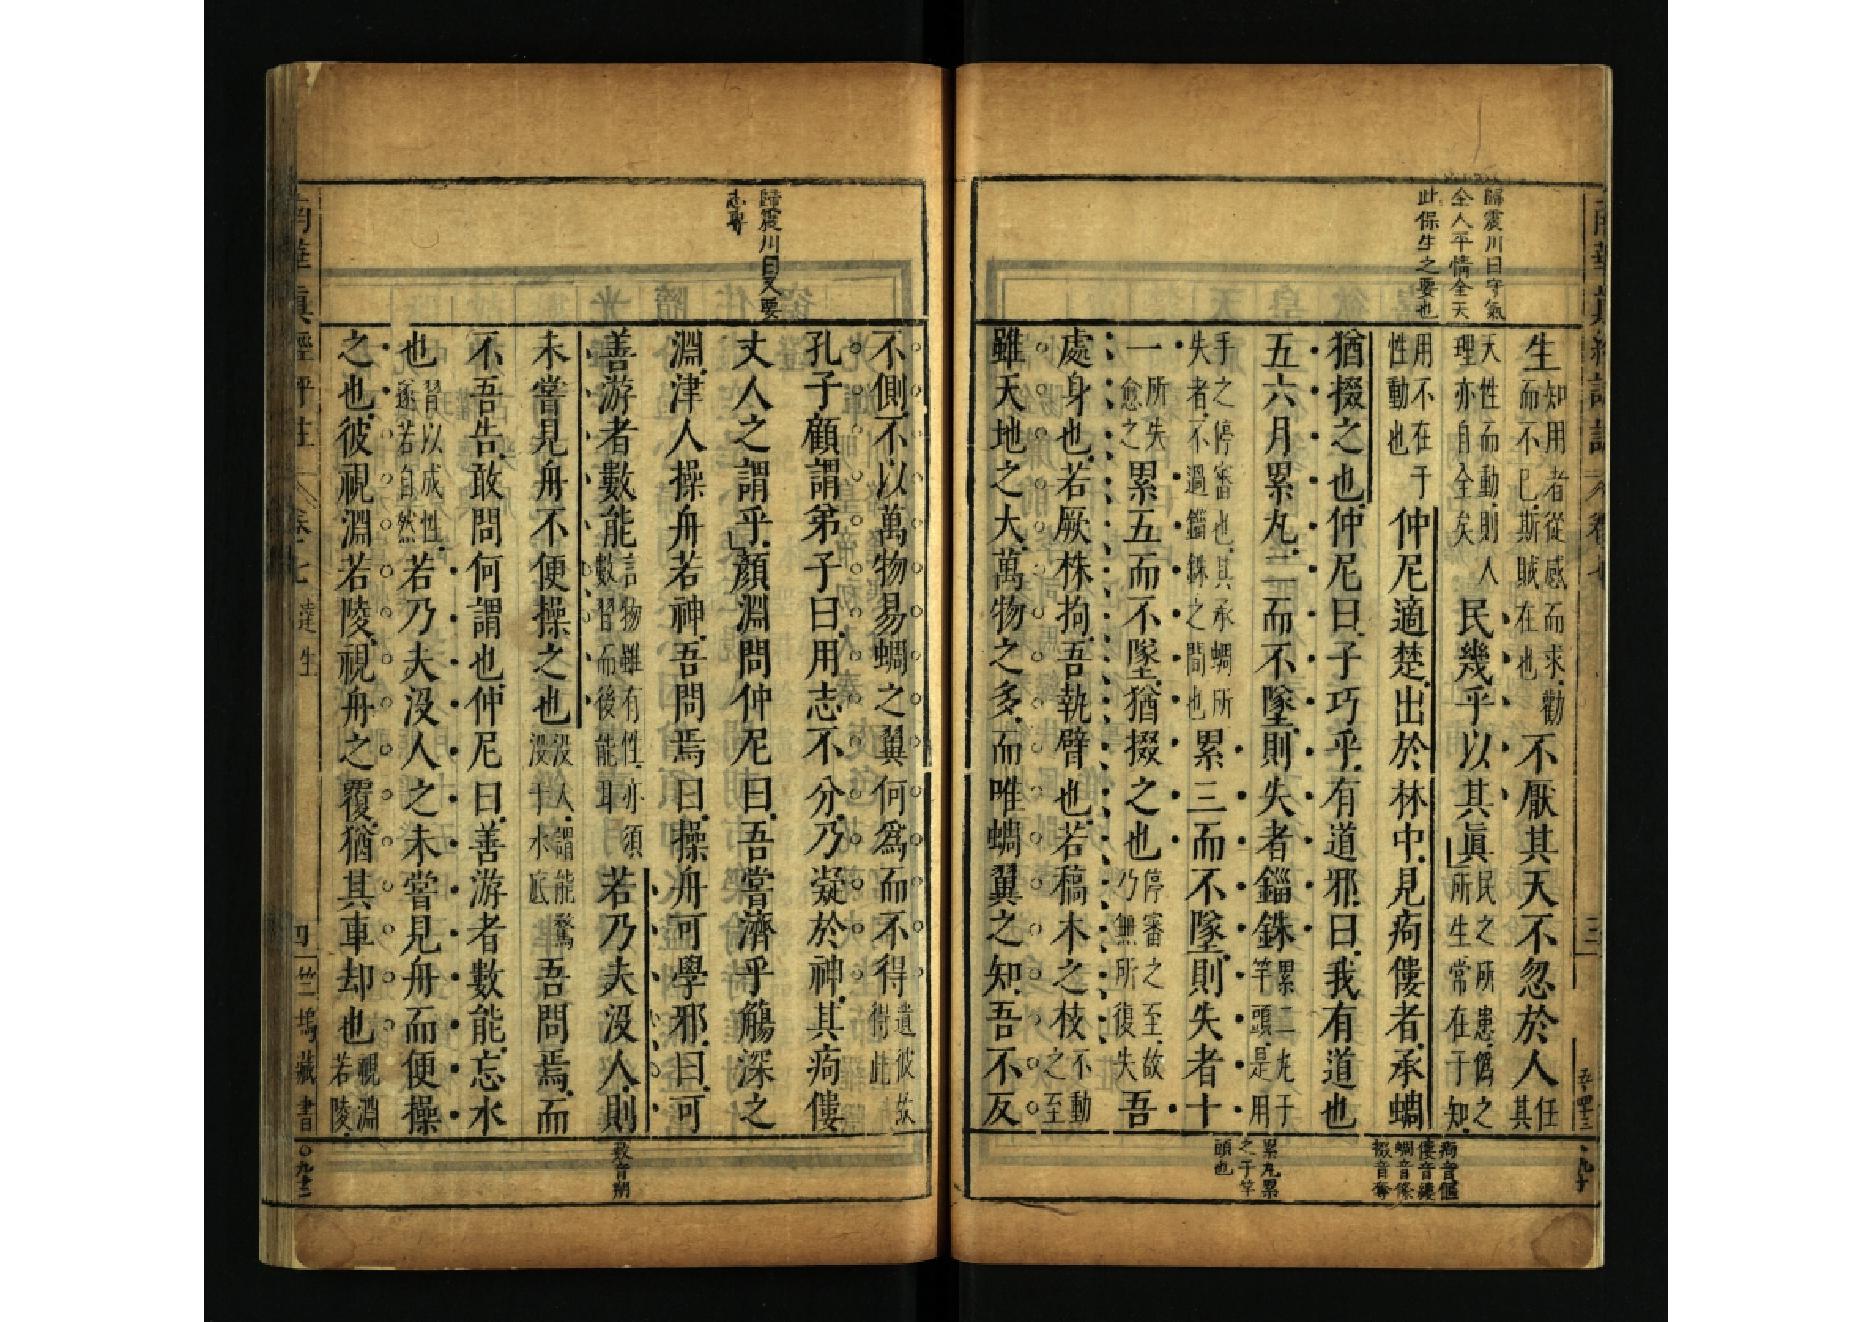 歸震川曰守氣
全人平情全天
此保生之要也
生知用者從感而求勸而不已斯賊在也不厭其天不忽於人任其
天性而動則人理亦自全矣民幾乎以其眞民之所患僞之所生常在于知
用不在于性動也仲尼適楚出於林中見痀僂者承蜩
猶掇之也仲尼曰子巧乎有道邪曰我有道也
五六月累丸二而不墜則失者錙銖累二丸于竿頭是用
手之停審也其承蜩所失者不過錙銖之間也累三而不墜則失者十
一所失愈之累五而不墜猶掇之也停審之至故乃無所復失吾
處身也若厥株拘吾執臂也若稿木之枝不動之至
雖天地之大萬物之多而唯蜩翼之知吾不反
痀音傴
僂音縷
蜩音條
掇音奪
累丸累
之于竿
頭也
歸震川曰又要
志專
不側不以萬物易蜩之翼何爲而不得遺彼故得此
孔子顧謂弟子曰用志不分乃凝於神其痀僂
丈人之謂乎顏淵問仲尼曰吾嘗濟乎觴深之
淵津人操舟若神吾問焉曰操舟可學邪曰可
善游者數能言物雖有性亦須數習而後能耳若乃夫沒人則
未嘗見舟而便操之也沒人謂能鶩沒于水底吾問焉而
不吾告敢問何謂也仲尼曰善游者數能忘水
也習以成性遂若自然若乃夫沒人之未嘗見舟而便操
之也彼視淵若陵視舟之覆猶其車却也視淵若陵
數音朔
南華眞經評註
卷七
達生
四
竺塢藏書